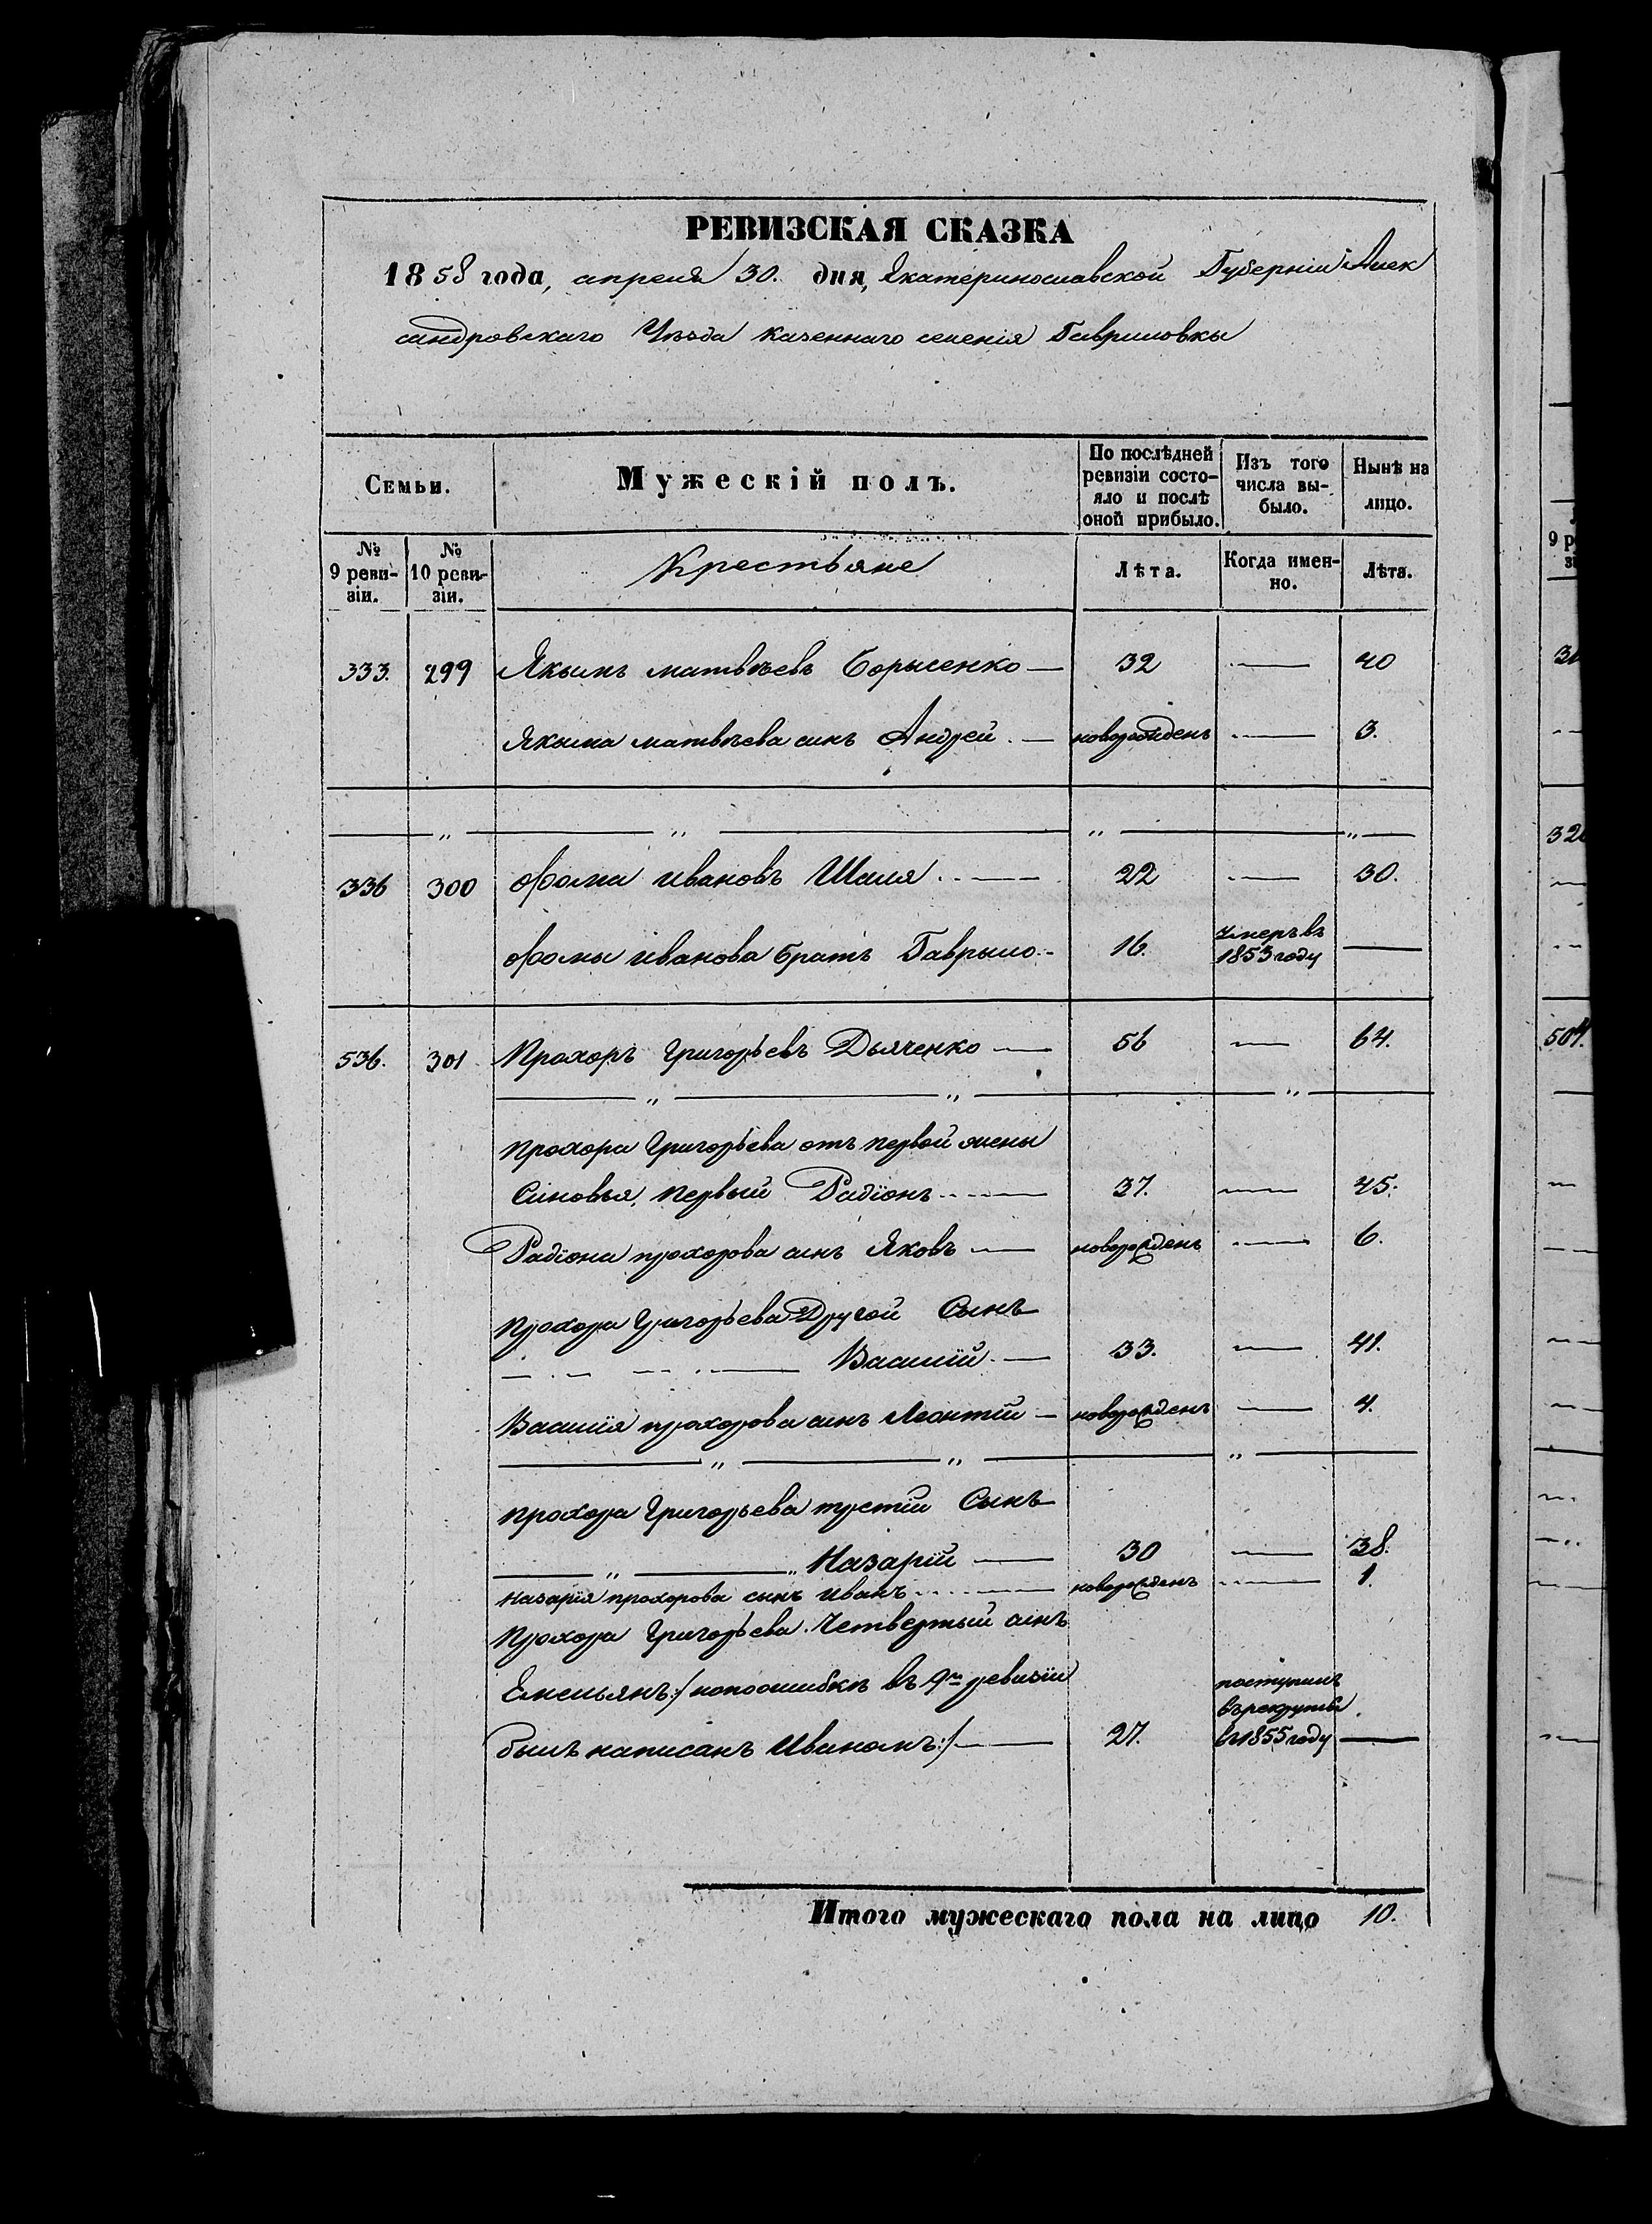 РЕВИЗСКАЯ СКАЗКА
1858 года, апреля 30. дня, Екатеринославской Губерніи Алек
сандровскаго Уѣзда казеннаго селенія Гавриловки
Семьи.
Мужескій полъ.
По послѣдней ревизіи состояло и послѣ оной прибыло.
Изъ того числа выбыло.
Нынѣ на лицо.
№ 9 ревизіи.
№ 10 ревизіи.
Крестьяне
Лѣта.
Когда именно.
Лѣта.
333. 299 Якымъ матвѣевъ Борысенко — 32 — 40
Якыма матвѣева синъ Андрей. — новорожденъ — 3.
336 300 Фома ивановъ Шаля — 22 — 30.
Фомы иванова братъ Гаврыло — 16. умеръ въ 1853 году —
536. 301 Прохоръ Григорьевъ Дьяченко — 56 — 64.
Прохора Григорьева отъ первой жены
Синовья, первый Радіонъ — 37. — 45.
Радіона прохорова синъ Яковъ — новорожденъ — 6.
Прохора Григорьева Другой Сынъ
Василій — 33. — 41.
Василія прохорова синъ Леонтій — новорожденъ — 4.
прохора Григорьева третій Сынъ
Назарій — 30 — 38.
Назарія прохорова сынъ иванъ — новорожденъ — 1.
Прохора Григорьева Четвертый синъ
Емельянъ :/ но по ошибкѣ въ 9й ревизіи
былъ написанъ Иваномъ :/ — 27. поступилъ въ рекруты въ 1855 году —
Итого мужескаго пола на лицо 10.
9 ре
32
504.